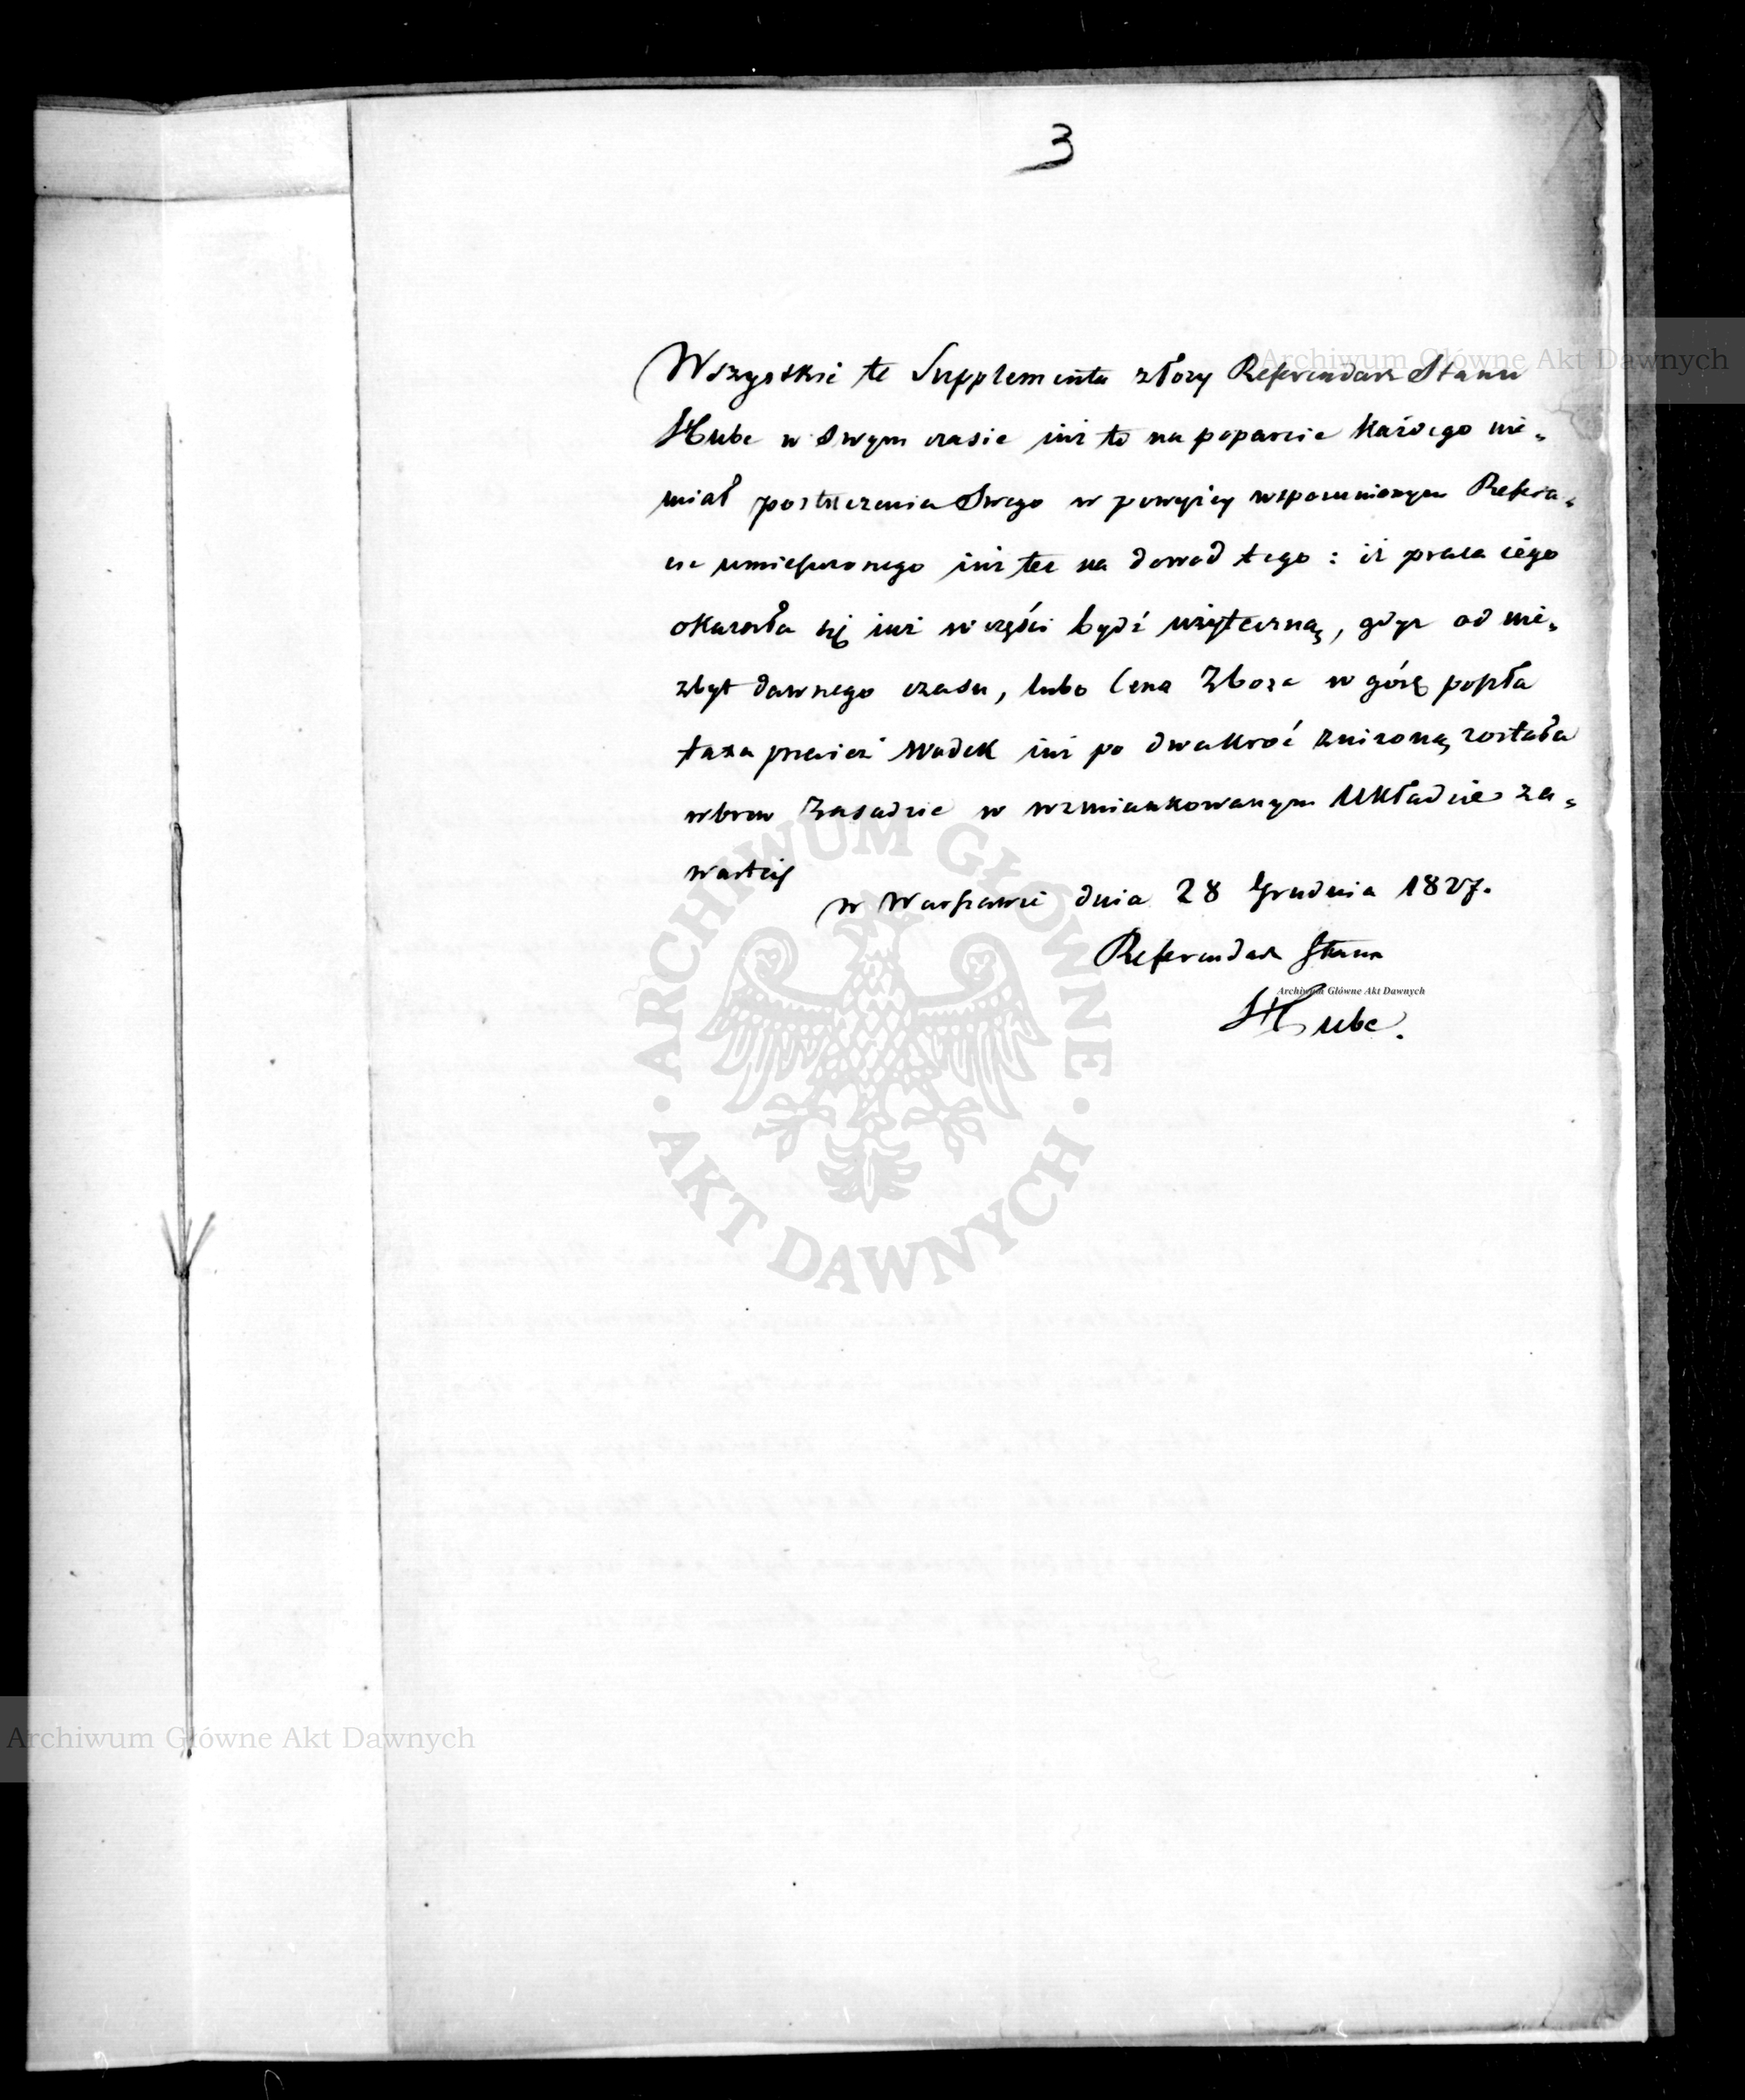 3
Wszystkie te Supplementa złoży Referendarz Stanu
Hube w Swym czasie iuż to na poparcie każdego nie-
miał postrzeżenia Swego w powyżey wspomnionym Refera-
cie umieszczonego iuż też na dowód tego: iż praca iégo
okazała się iuż w części bydź użyteczną, gdyż od nie-
zbyt dawnego czasu, lubo Cena Zboża w górę poszła
taxa przecież wódek iuż po dwakroć zniżoną została
wbrew Zasadzie w wzmiankowanym Układzie za-
wartéy
w Warszawie dnia 28 Grudnia 1827.
Referendarz Stanu
Hube.
Archiwum Główne Akt Dawnych
Archiwum Główne Akt Dawnych
ARCHIWUM GŁÓWNE
AKT DAWNYCH
Archiwum Główne Akt Dawnych